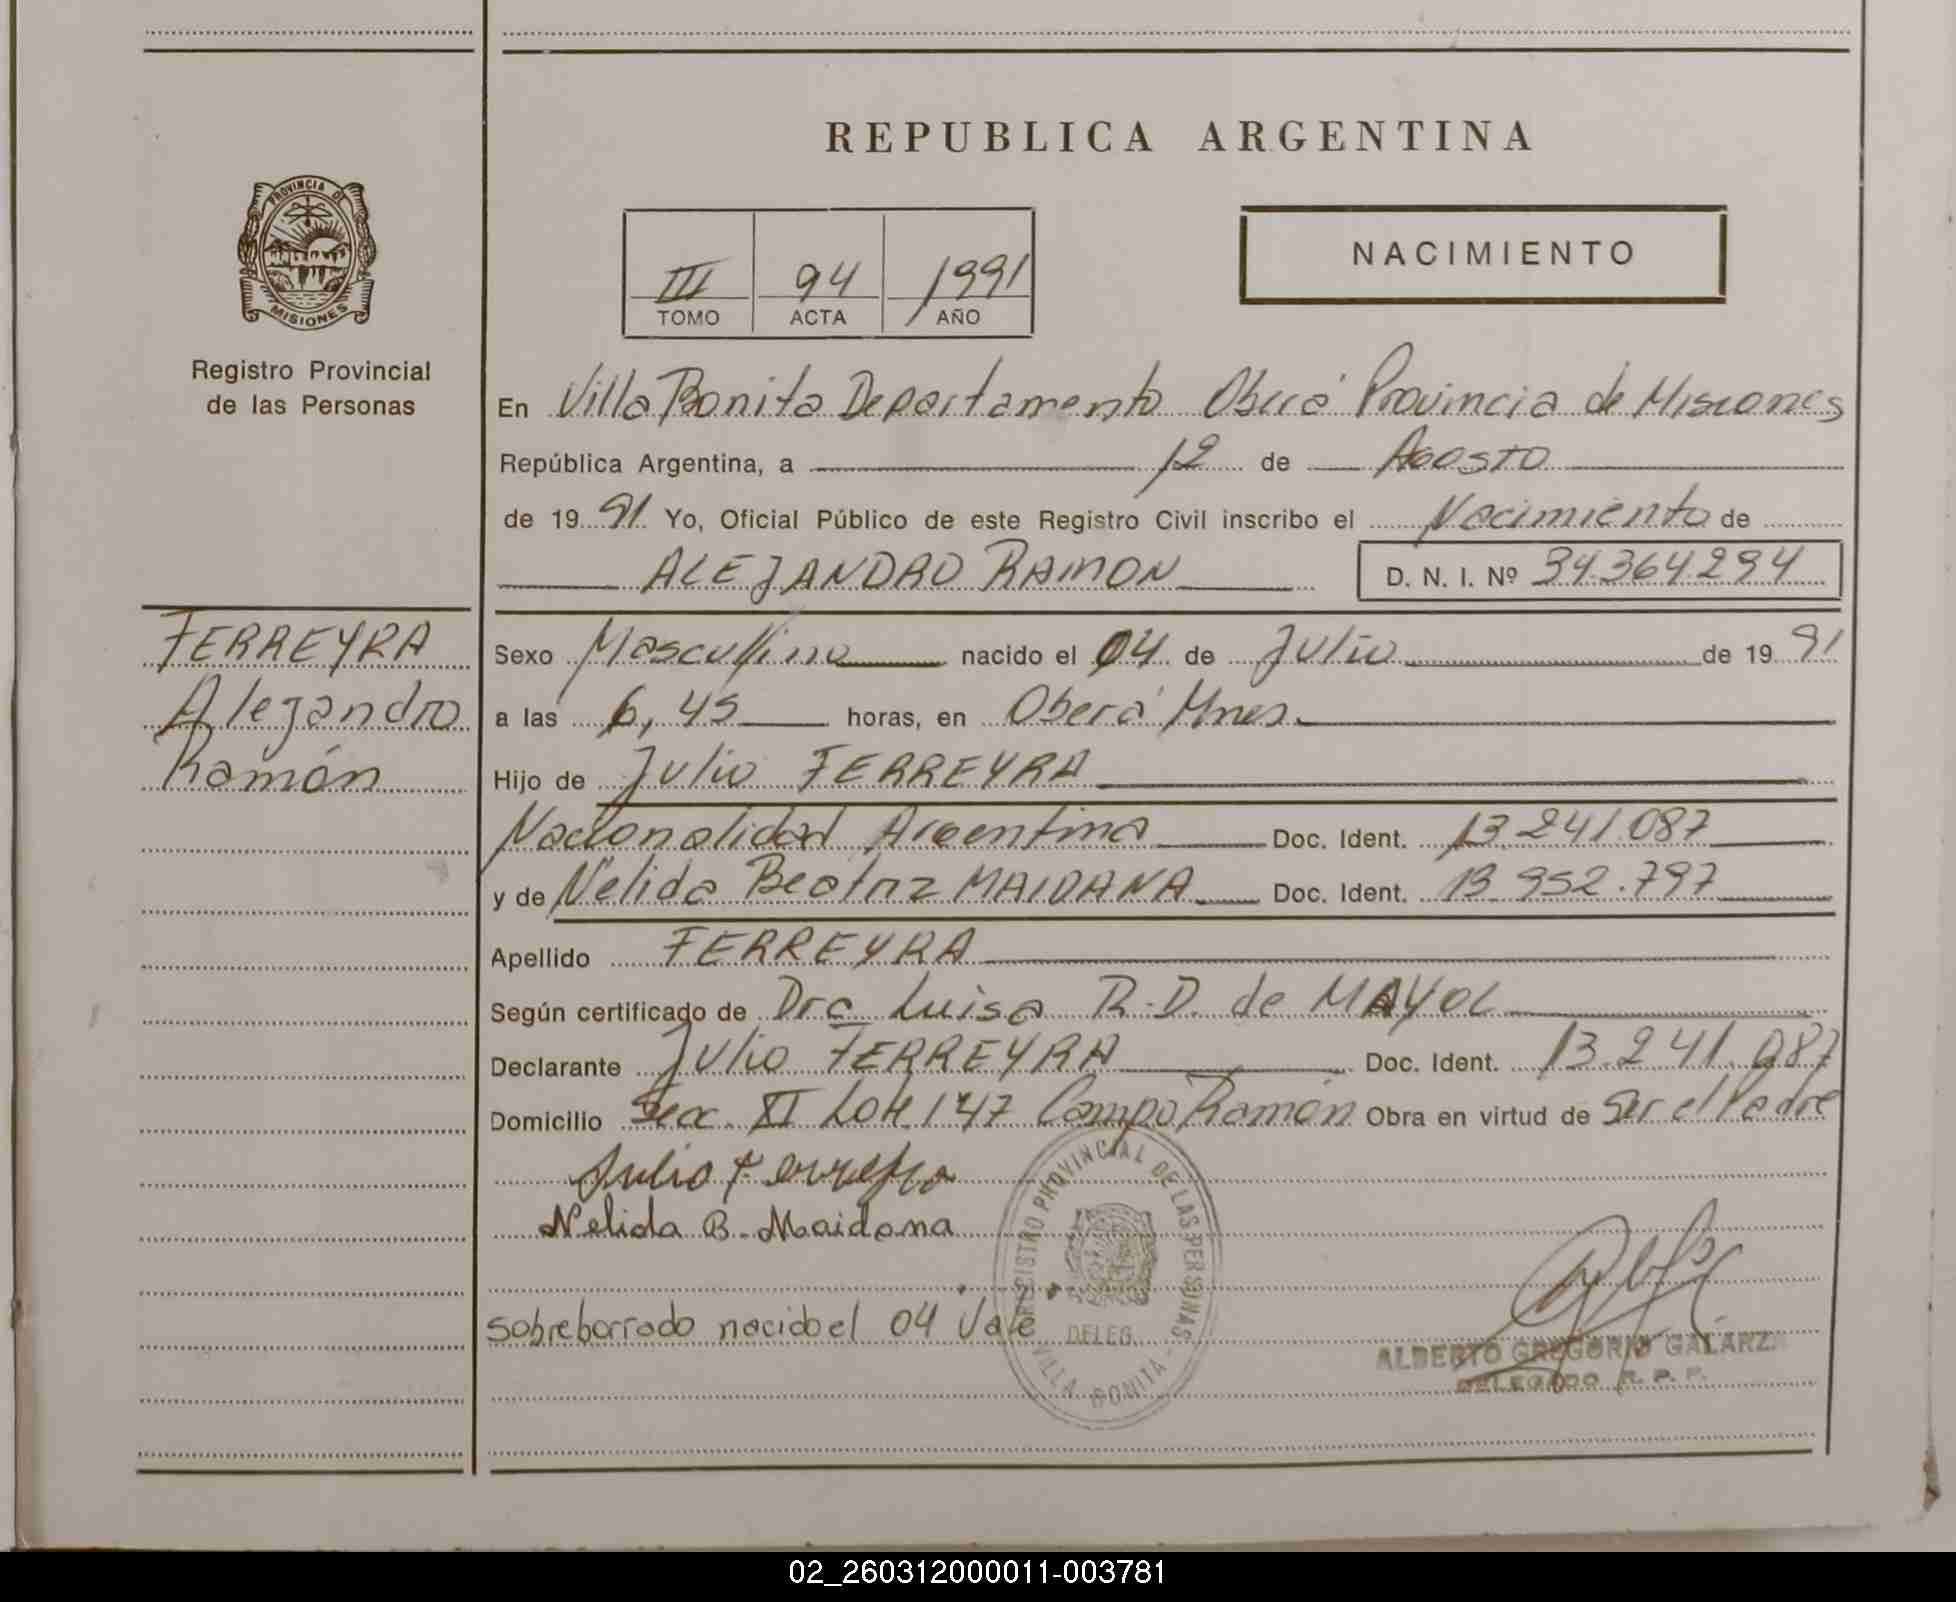 REPUBLICA ARGENTINA
PROVINCIA DE
MISIONES
Registro Provincial
de las Personas
III 94 1991
TOMO ACTA AÑO
NACIMIENTO
En Villa Bonita Departamento Oberá Provincia de Misiones
República Argentina, a 12 de Agosto
de 1991 Yo, Oficial Público de este Registro Civil inscribo el Nacimiento de
ALEJANDRO RAMON D. N. I. Nº 34.364.294
FERREYRA
Alejandro
Ramón
Sexo Masculino nacido el 04 de Julio de 1991
a las 6,45 horas, en Oberá Mnes.
Hijo de Julio FERREYRA
Nacionalidad Argentina Doc. Ident. 13.241.087
y de Nélida Beatriz MAIDANA Doc. Ident. 13.952.797
Apellido FERREYRA
Según certificado de Dra Luisa R.D. de MAYOL
Declarante Julio FERREYRA Doc. Ident. 13.241.087
Domicilio Secc. XI Lote 147 Campo Ramón Obra en virtud de Ser el Padre
Julio Ferreyra
Nelida B. Maidana
sobreborrado nacido el 04 Vale
REGISTRO PROVINCIAL DE LAS PERSONAS
DELEG.
VILLA BONITA
ALBERTO GREGORIO GALARZA
DELEGADO R. P. P.
02_260312000011-003781